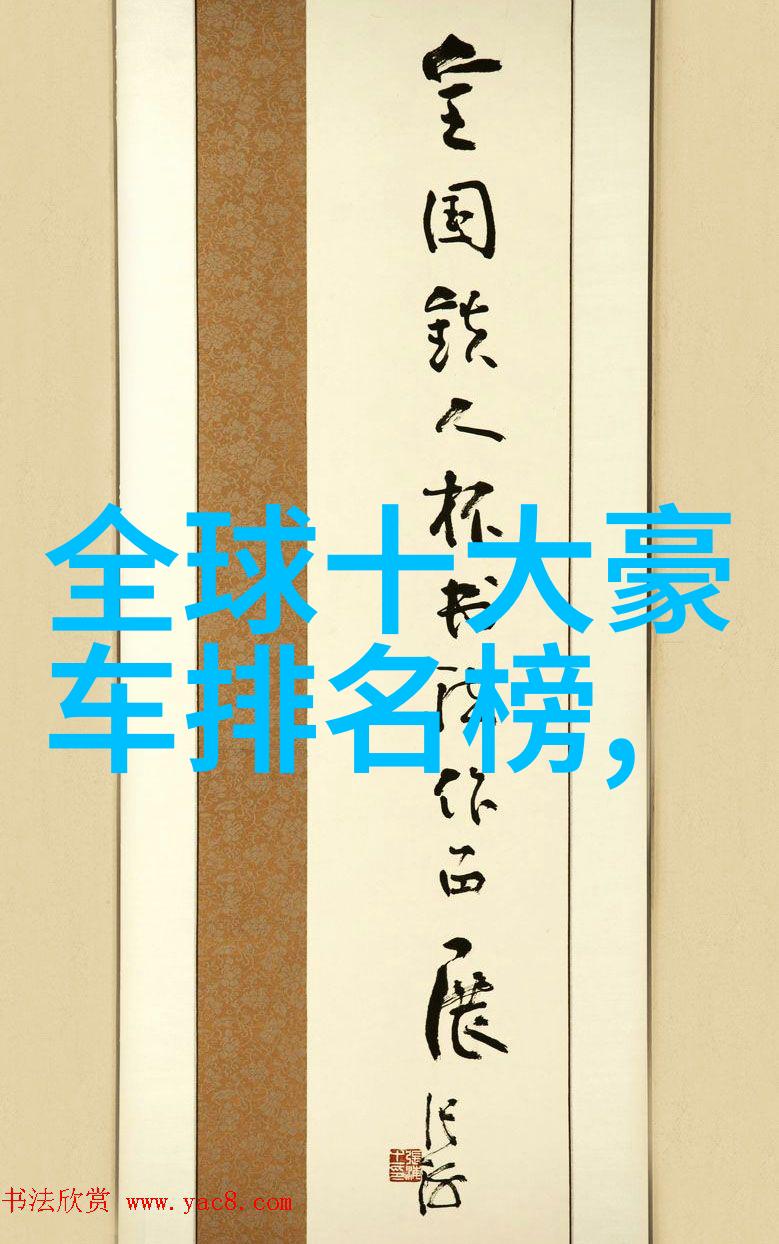 全国铁人杯书法作品展
全球十大豪
车排名榜,
书法欣赏 www.yac8.com